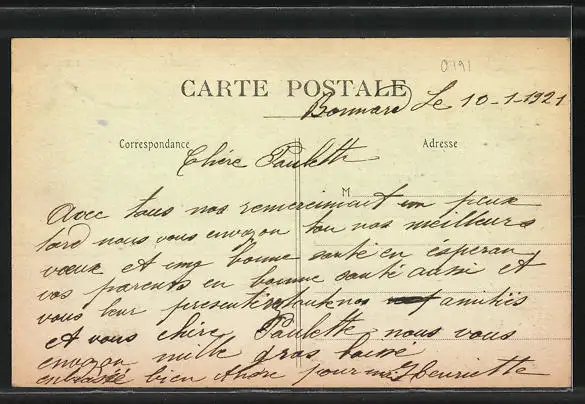 0191
CARTE POSTALE
Bonnard Le 10-1-1921
Correspondance
Adresse
Chère Paulette
M
Avec tous nos remerciment un peux
tard nous vous envoyon tou nos meilleurs
vœux et une bonne santé en ésperan
vos parents en bonne santé aussi et
vous leur presentire toute nos amitiés
et vous chère Paulette nous vous
envoyon mille gros baisé
embrassé bien André pour moi Henriette